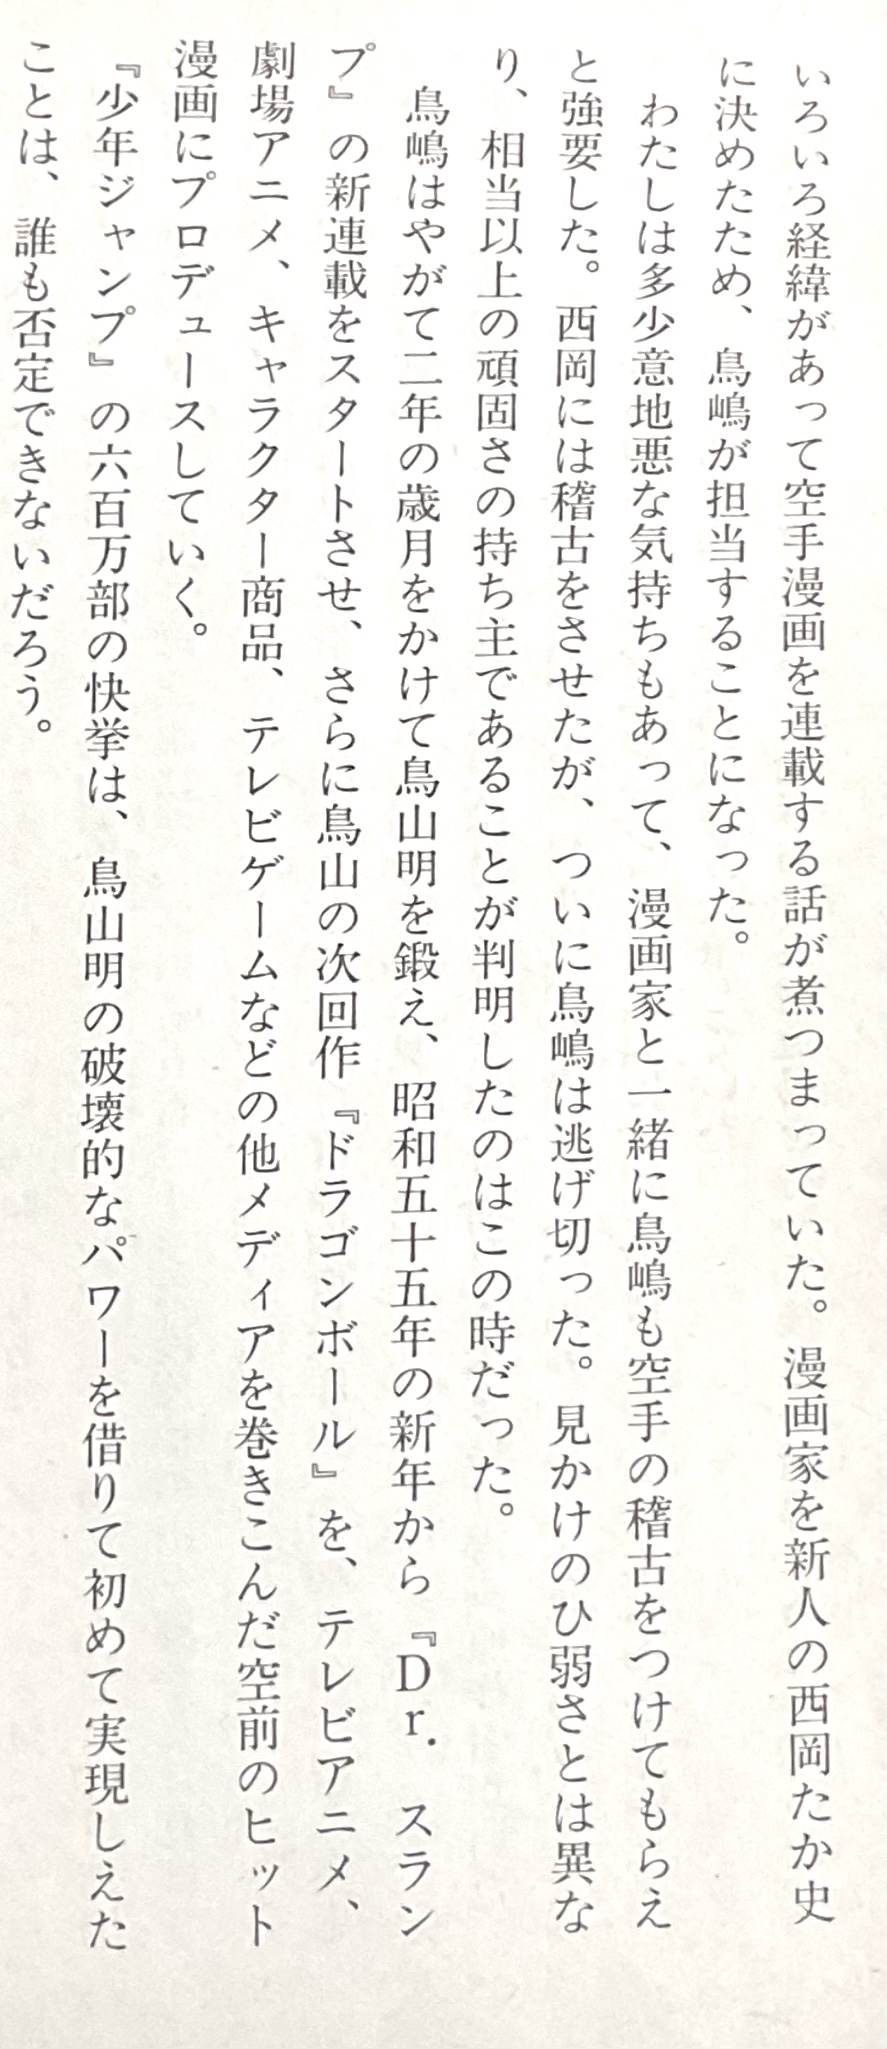 いろいろ経緯があって空手漫画を連載する話が煮つまっていた。漫画家を新人の西岡たか史
に決めたため、鳥嶋が担当することになった。
わたしは多少意地悪な気持ちもあって、漫画家と一緒に鳥嶋も空手の稽古をつけてもらえ
と強要した。西岡には稽古をさせたが、ついに鳥嶋は逃げ切った。見かけのひ弱さとは異な
り、相当以上の頑固さの持ち主であることが判明したのはこの時だった。
鳥嶋はやがて二年の歳月をかけて鳥山明を鍛え、昭和五十五年の新年から『Dr.スラン
プ』の新連載をスタートさせ、さらに鳥山の次回作『ドラゴンボール』を、テレビアニメ、
劇場アニメ、キャラクター商品、テレビゲームなどの他メディアを巻きこんだ空前のヒット
漫画にプロデュースしていく。
『少年ジャンプ』の六百万部の快挙は、鳥山明の破壊的なパワーを借りて初めて実現しえた
ことは、誰も否定できないだろう。